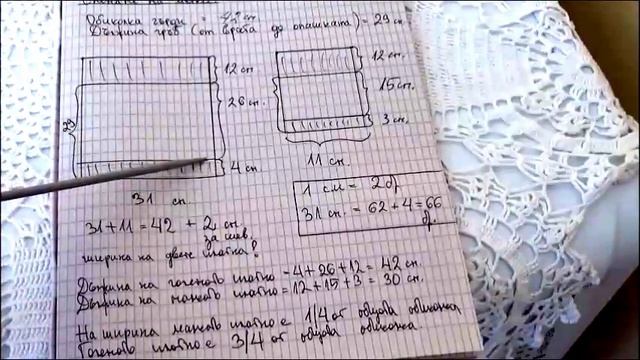 Обиколка гърди = 42 см
Дължина гръб (от врата до опашката) = 29 см.
12 см
26 см.
29
4 см
31 см.
12 см.
15 см.
3 см.
11 см.
1 см = 2 бр
31 см. = 62 + 4 = 66
бр.
31 + 11 = 42 + 2 см.
за шев.
ширина на двете платна!
Дължина на голямото платно = 4 + 26 + 12 = 42 см.
Дължина на малкото платно = 12 + 15 + 3 = 30 см.
На ширина малкото платно е 1/4 от общата обиколка
Голямото платно е 3/4 от общата обиколка.